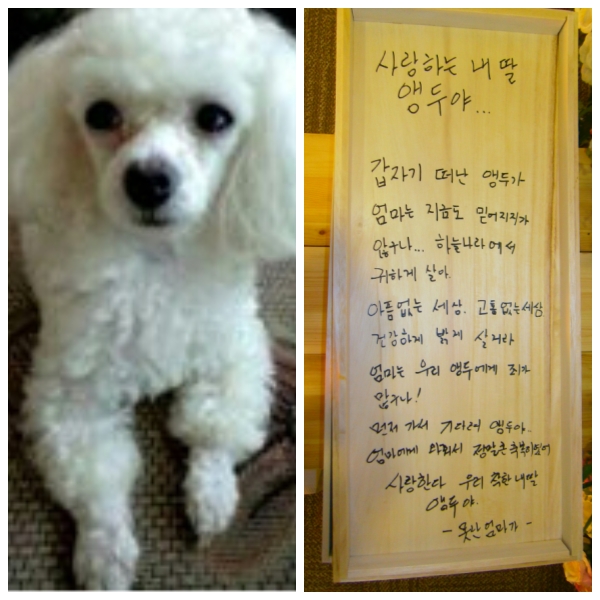 사랑하는 내 딸
앵두야...
갑자기 떠난 앵두가
엄마는 지금도 믿어지지가
않구나... 하늘나라에서
귀하게 살아.
아픔없는 세상. 고통없는세상
건강하게 밝게 살거라
엄마는 우리 앵두에게 죄가
많구나!
먼저 가서 기다려 앵두야.
엄마에게 와줘서 정말큰축복이였어
사랑한다 우리 착한내딸
앵두야.
- 못난엄마가 -